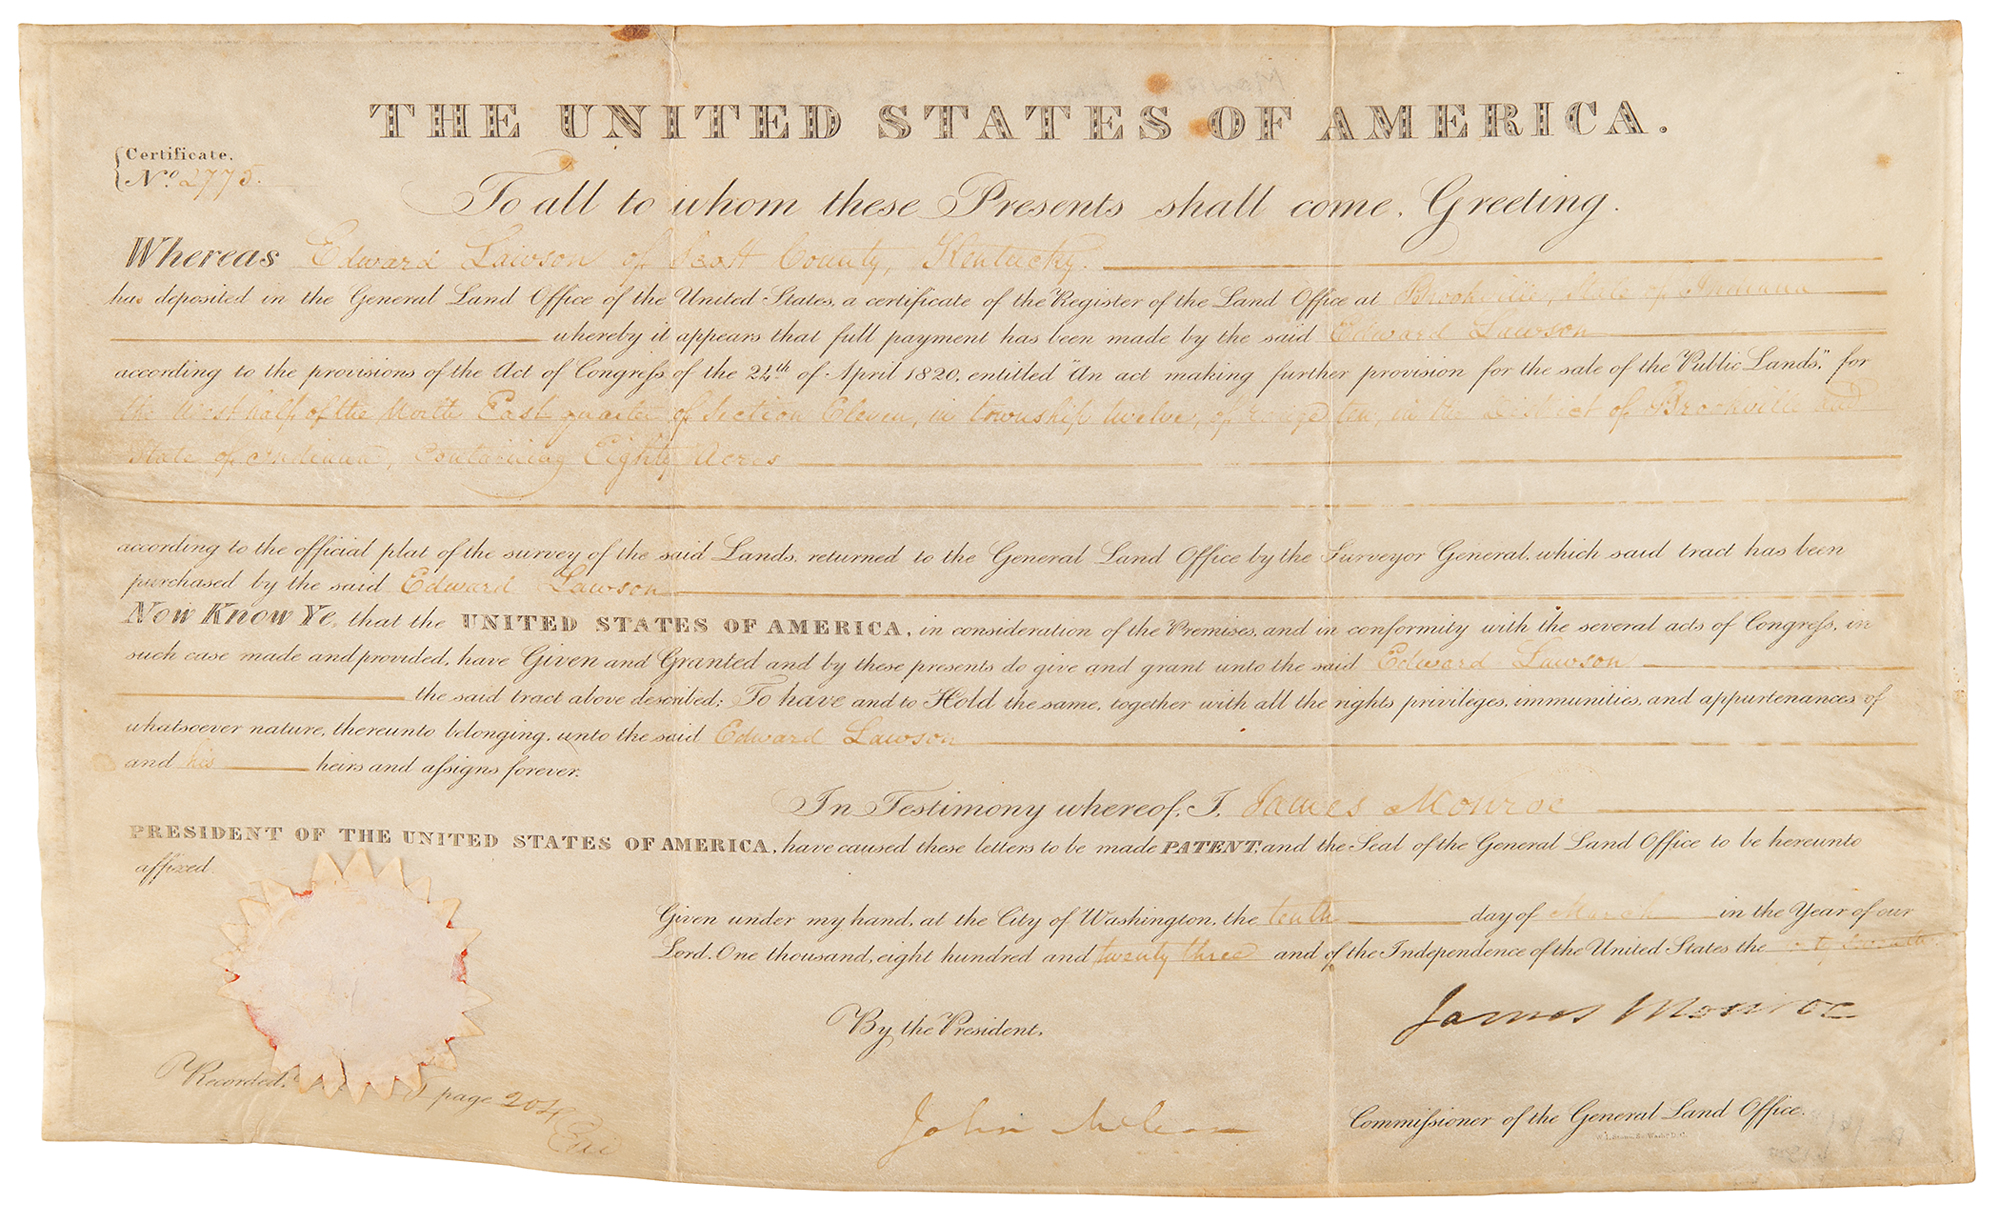 THE UNITED STATES OF AMERICA.
Certificate.
No 2775.
To all to whom these Presents shall come, Greeting.
Whereas Edward Lawson of Scott County, Kentucky.
has deposited in the General Land Office of the United States, a certificate of the Register of the Land Office at Brookville, State of Indiana
whereby it appears that full payment has been made by the said Edward Lawson
according to the provisions of the Act of Congress of the 24th of April 1820, entitled "An act making further provision for the sale of the Public Lands," for
the West half of the North East quarter of Section Eleven, in township twelve, of range ten, in the District of Brookville and
State of Indiana, Containing Eighty Acres
according to the official plat of the survey of the said Lands, returned to the General Land Office by the Surveyor General, which said tract has been
purchased by the said Edward Lawson
Now Know Ye, that the UNITED STATES OF AMERICA, in consideration of the Premises, and in conformity with the several acts of Congress, in
such case made and provided, have Given and Granted and by these presents do give and grant unto the said Edward Lawson
the said tract above described; To have and to Hold the same, together with all the rights privileges, immunities, and appurtenances of
whatsoever nature, thereunto belonging, unto the said Edward Lawson
and his heirs and assigns forever.
In Testimony whereof, I, James Monroe
PRESIDENT OF THE UNITED STATES OF AMERICA, have caused these letters to be made PATENT, and the Seal of the General Land Office to be hereunto
affixed.
Given under my hand, at the City of Washington, the tenth day of March in the Year of our
Lord, One thousand, eight hundred and twenty three and of the Independence of the United States the
James Monroe
By the President,
Recorded, page 204
John McLean Commissioner of the General Land Office.